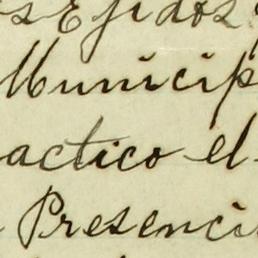 s Ejidos
Municip
actico el
Presenci